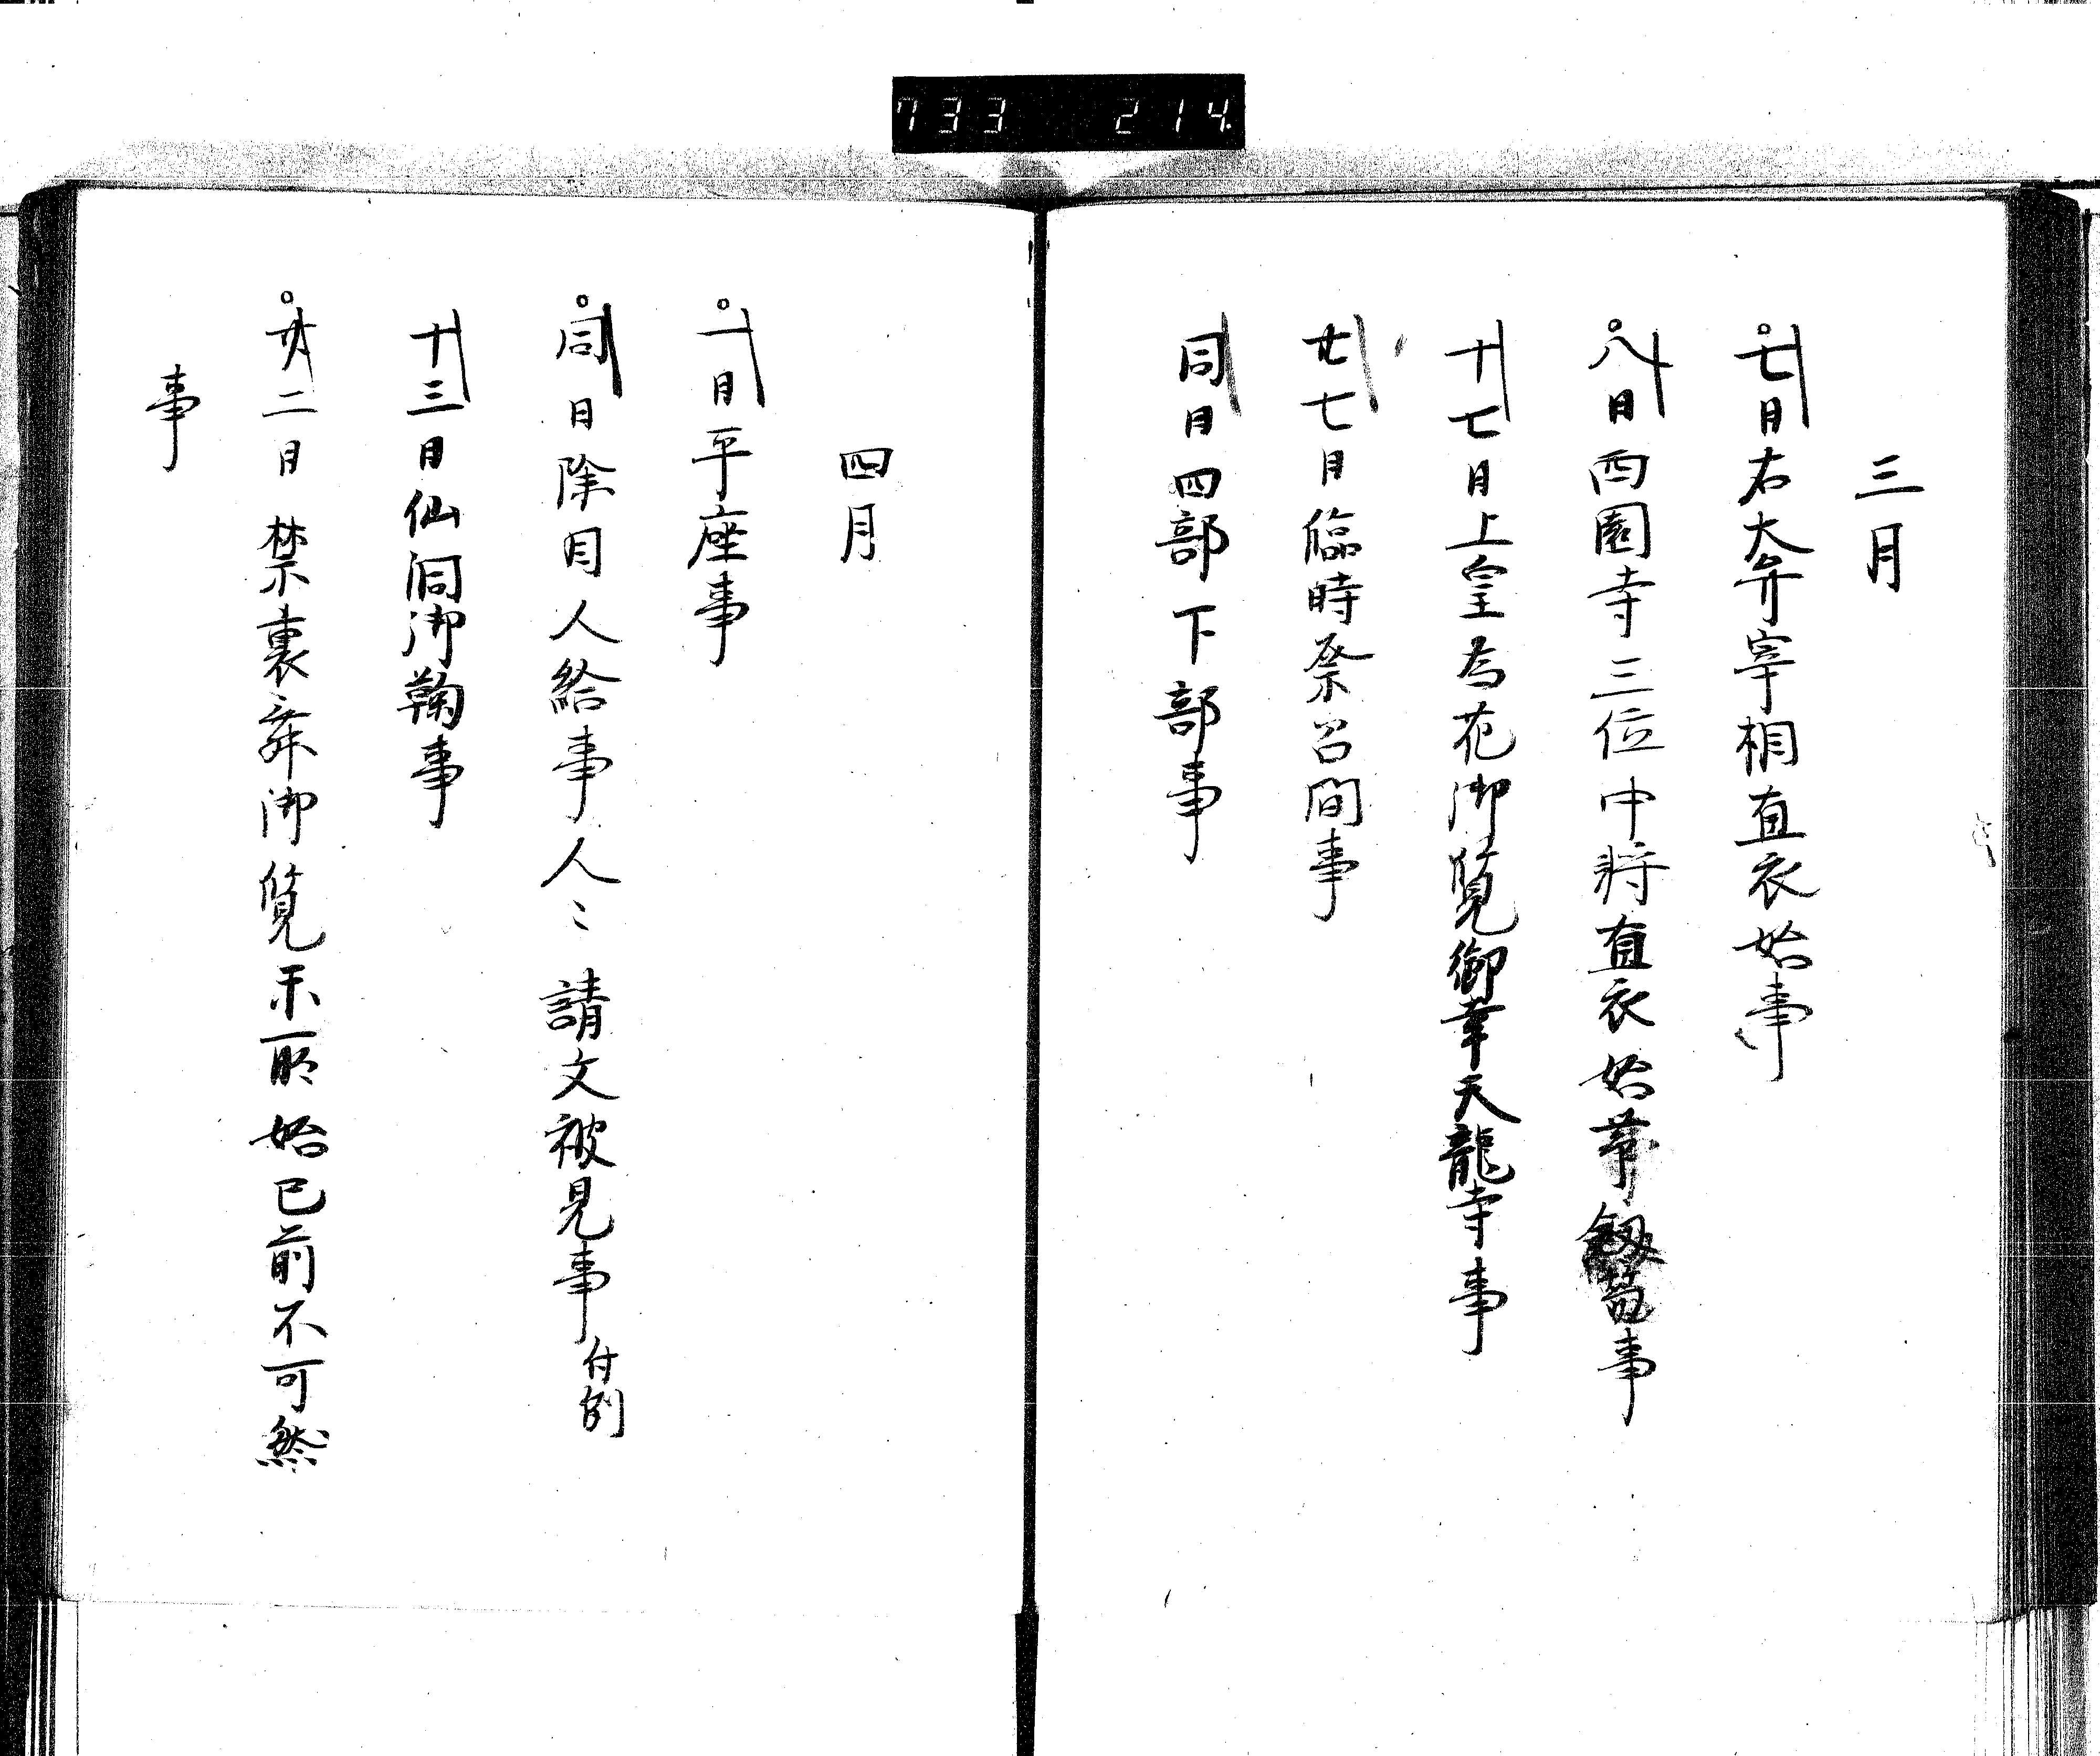 733 214
三月
七日右大弁宰相直衣始事
八日西園寺三位中将直衣始帯剱笏事
十七日上皇為花御覧御幸天龍寺事
廿七日臨時祭召間事
同日四部下部事
四月
一日平座事
同日除目人給事人々請文被見事付例
十三日仙洞御鞠事
廿二日禁裏舞御覧未所始已前不可然
事